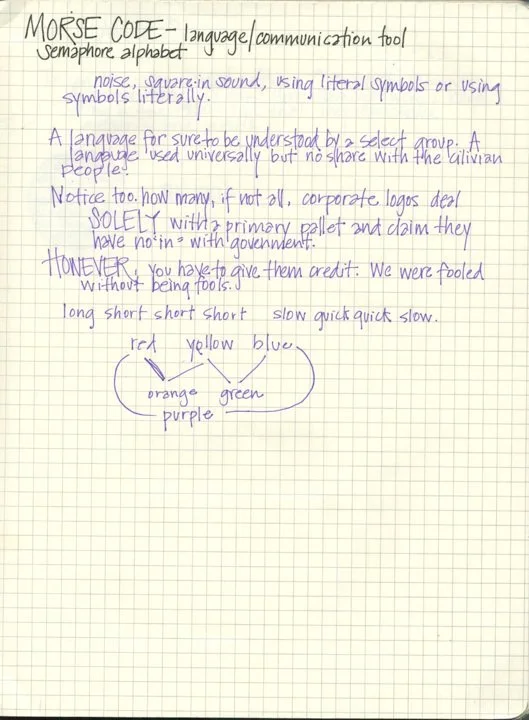 MORSE CODE - language/communication tool
Semaphore alphabet
noise, square in sound, using literal symbols or using
symbols literally.
A language for sure to be understood by a select group. A
langauge used universally but no share with the cilivian
people!
Notice too. how many, if not all, corporate logos deal
SOLELY with a primary pallet and claim they
have no "in" with government.
HOWEVER, you have to give them credit. We were fooled
without being fools.
long short short short slow quick quick slow.
red yellow blue
orange green
purple